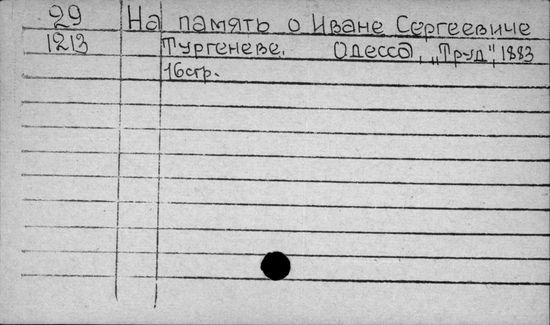 29 На память о Иване Сергеевиче
1213 Тургеневе. Одесса, „Труд", 1883
16стр.